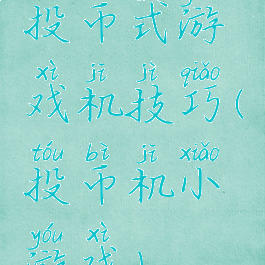 投币式游
xì jī jì qiǎo
戏机技巧(
tóu bì jī xiǎo
投币机小
yóu xì
游戏)